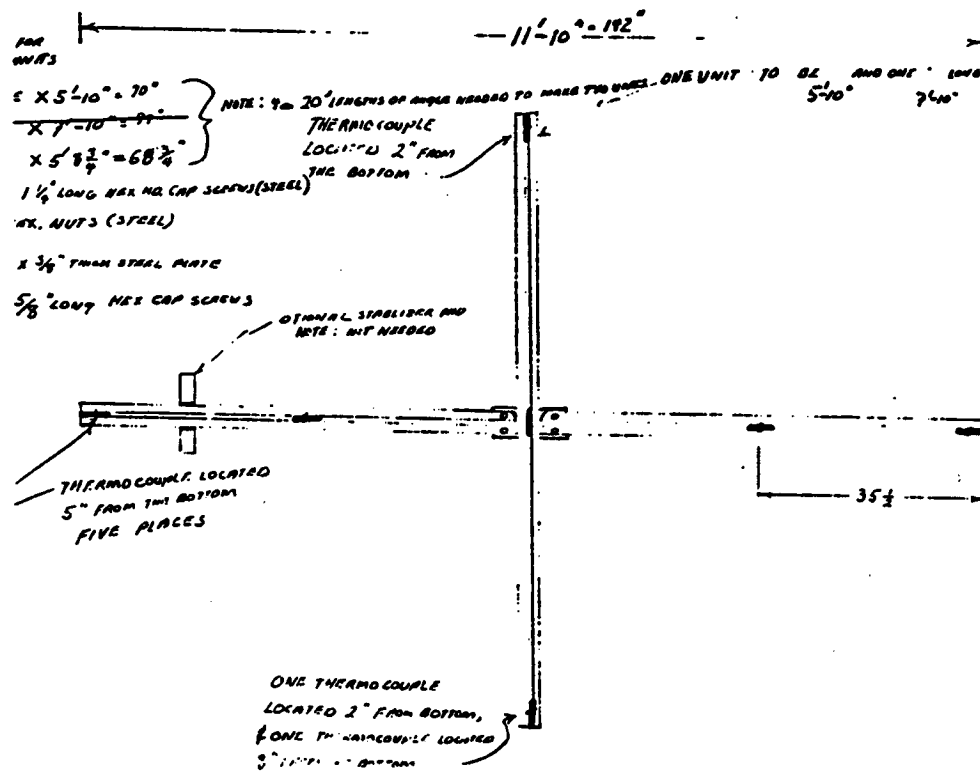 11'-10" = 142"
FOR
UNITS
X 5'-10" = 70"
X 7'-10" =
X 5' 8 3/4" = 68 3/4"
NOTE: 20' LENGTHS OF ANGLE NEEDED TO MAKE TWO UNITS ONE UNIT TO BE 5'-10" AND ONE 7'-10" LONG
THERMOCOUPLE
LOCATED 2" FROM
THE BOTTOM
1 1/4" LONG HEX HD. CAP SCREWS (STEEL)
HEX. NUTS (STEEL)
X 3/8" THICK STEEL PLATE
5/8" LONG HEX CAP SCREWS
OTIONAL STABILIZER AND
NOTE: NOT NEEDED
THERMOCOUPLE LOCATED
5" FROM THE BOTTOM
FIVE PLACES
35 1/2
ONE THERMOCOUPLE
LOCATED 2" FROM BOTTOM,
& ONE THERMOCOUPLE LOCATED
BOTTOM